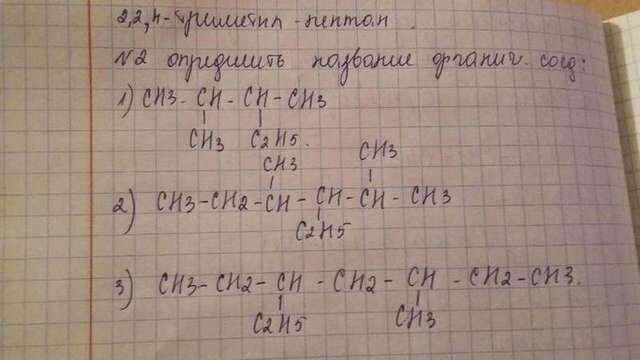 2,2,4-триметил-гептан.
№2 определить название органич. соед:
1) CH3-CH-CH-CH3
CH3 C2H5.
CH3 CH3
2) CH3-CH2-CH-CH-CH-CH3
C2H5
3) CH3-CH2-CH-CH2-CH-CH2-CH3.
C2H5 CH3